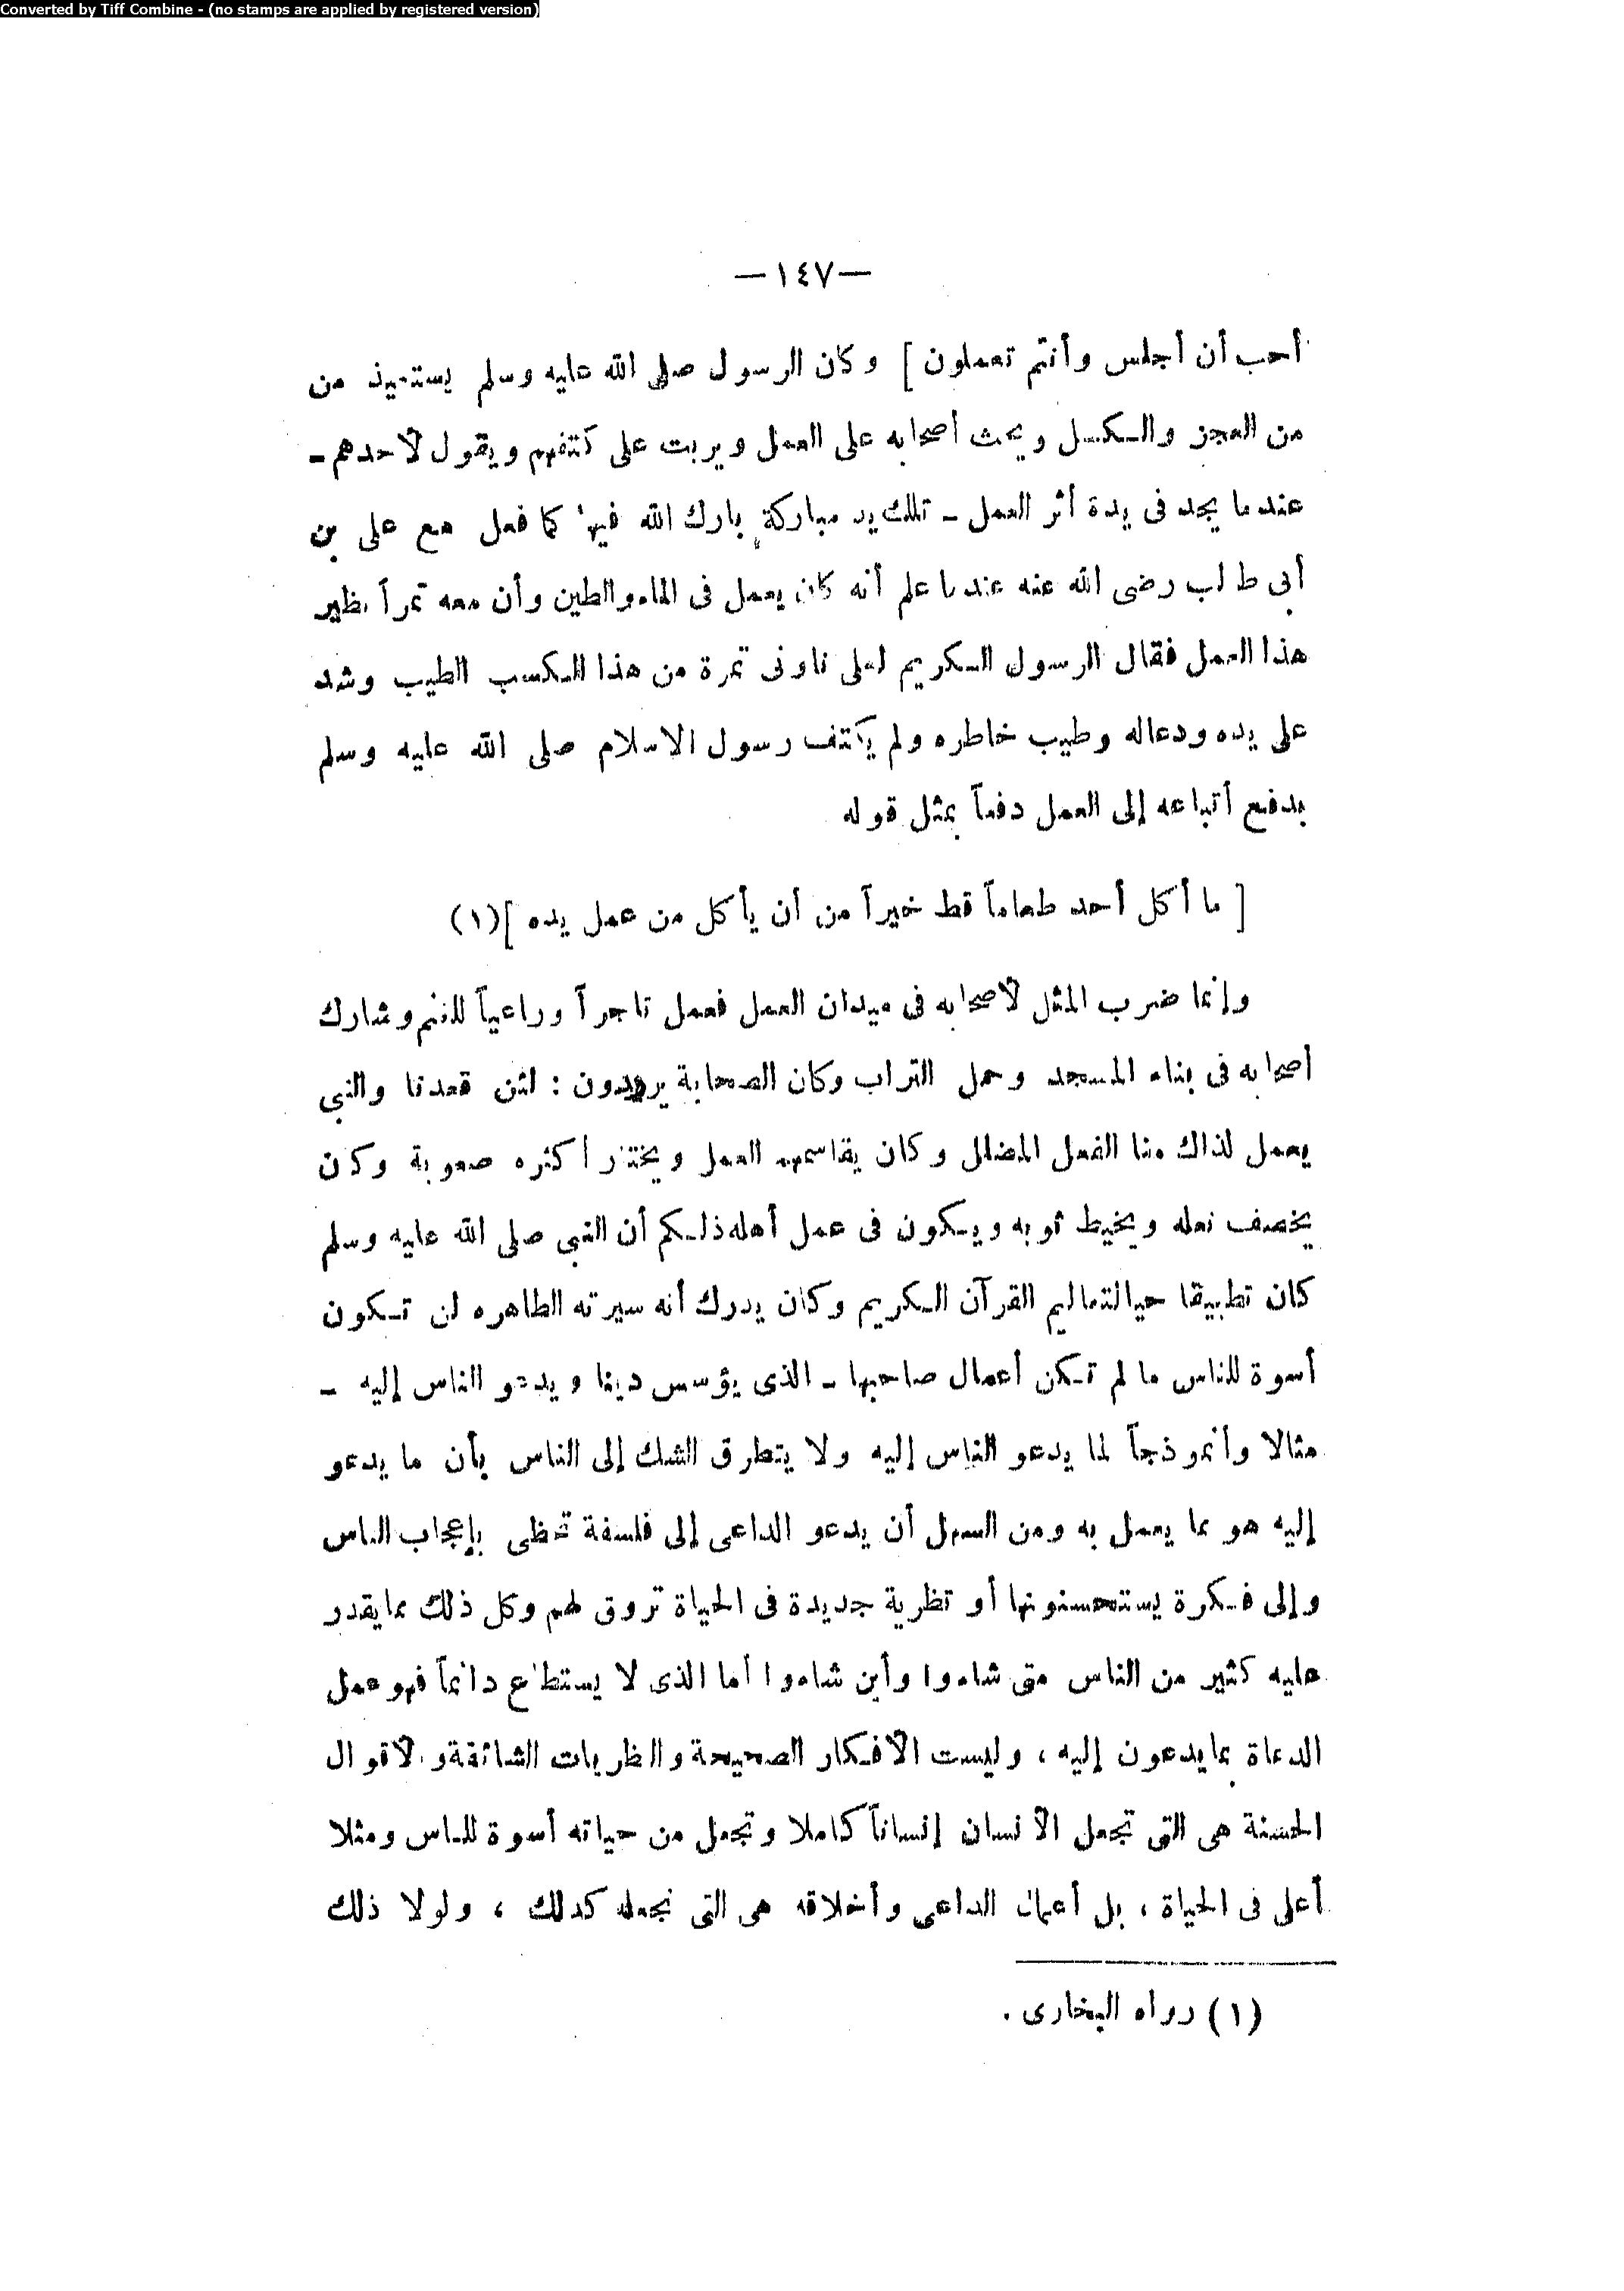 Converted by Tiff Combine - (no stamps are applied by registered version)
— ١٤٧ —
أحب أن أجلس وأنتم تعملون ] وكان الرسول صلى الله عليه وسلم يستعيذ من
من العجز والكسل ويحث أصحابه على العمل ويربت على كتفهم ويقول لاحدهم -
عندما يجد فى يدة أثر العمل - تلك يد مباركة بارك الله فيها كما فعل مع على بن
أبى طالب رضى الله عنه عندما علم أنه كان يعمل فى الماء والطين وأن معه تمرآ نظير
هذا العمل فقال الرسول الكريم لعلى ناولنى تمرة من هذا الكسب الطيب وشد
على يده ودعاله وطيب خاطره ولم يكتف رسول الاسلام صلى الله عليه وسلم
بدفع أتباعه إلى العمل دفعاً بمثل قوله
[ ما أكل أحد طعاماً قط خيرآ من أن يأكل من عمل يده ](١)
وإنما ضرب المثل لأصحابه فى ميدان العمل فعمل تاجرآ وراعياً للغنم وشارك
أصحابه فى بناء المسجد وحمل التراب وكان الصحابة يرددون : لئن قعدنا والنبى
يعمل لذاك منا الفعل المضلل وكان يقاسمهم العمل ويختار أكثره صعوبة وكان
يخصف نعله ويخيط ثوبه ويكون فى عمل أهله ذلكم أن النبى صلى الله عليه وسلم
كان تطبيقا حيا لتعاليم القرآن الكريم وكان يدرك أنه سيرته الطاهره لن تكون
أسوة للناس ما لم تكن أعمال صاحبها - الذى يؤسس دينا ويدعو الناس إليه -
مثالا وأنموذجاً لما يدعو الناس إليه ولا يتطرق الشك إلى الناس بأن ما يدعو
إليه هو مما يعمل به ومن السهل أن يدعو الداعى إلى فلسفة تحظى بإعجاب الناس
وإلى فكرة يستحسنونها أو تظرية جديدة فى الحياة تروق لهم وكل ذلك مما يقدر
عليه كثير من الناس متى شاءوا وأين شاءوا أما الذى لا يستطاع دائماً فهو عمل
الدعاة بما يدعون إليه ، وليست الأفكار الصحيحة والنظريات الشائقة والأقوال
الحسنة هى التى تجعل الأنسان إنساناً كاملا وتجعل من حياته أسوة للناس ومثلا
أعلى فى الحياة ، بل أعمال الداعى وأخلاقه هى التى تجعله كذلك ، ولولا ذلك
(١) رواه البخارى .